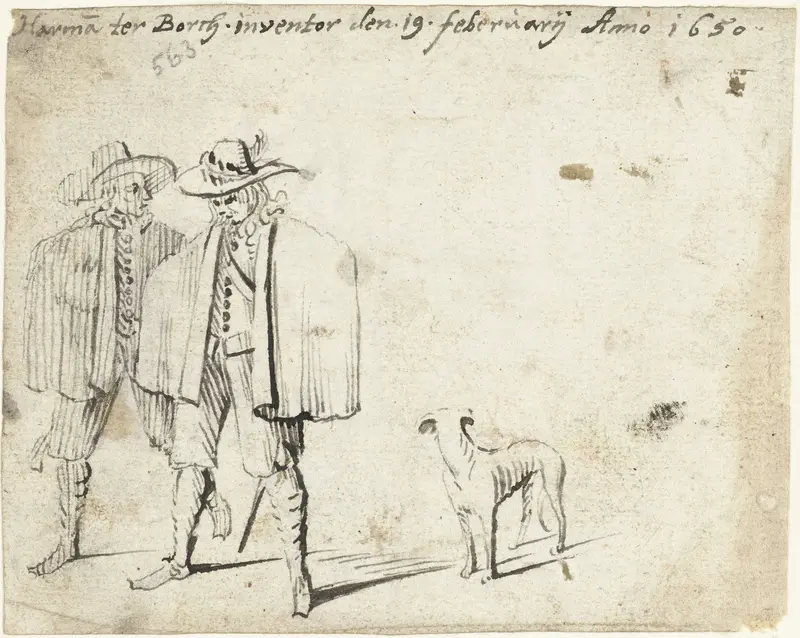 Harmā ter Borch · inventor den · 19 · feberùarij Anno 1650
563